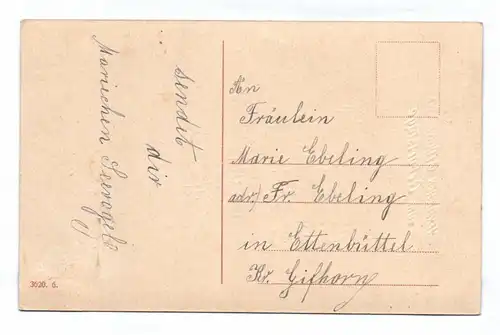 sendet
dir
Mariechen
An
Fräulein
Marie Ebeling
adr.) Fr. Ebeling
in Ettenbüttel
Kr. Gifhorn
3020. 6.